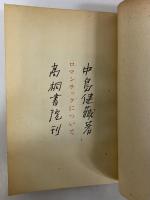 中島健蔵著
ロマンチックについて
高桐書院刊